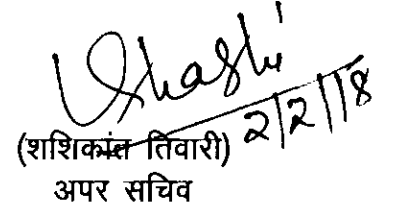 Shashi
2/2/18
(शशिकांत तिवारी)
अपर सचिव